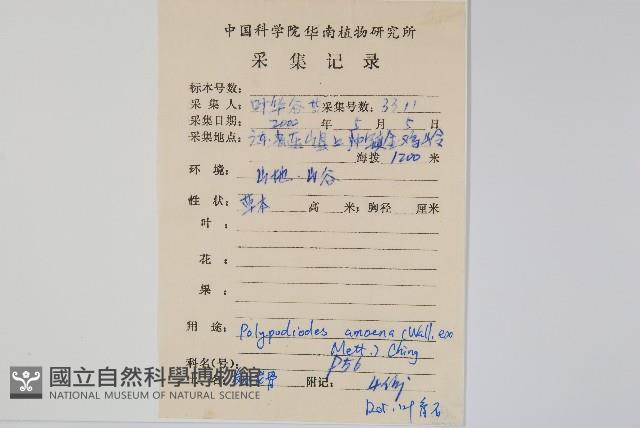 中国科学院华南植物研究所
采 集 记 录
标本号数:
采 集 人: 叶华谷 采集号数: 3311
采集日期: 2002 年 5 月 5 日
采集地点:
海拨 1200 米
环 境: 山地 山谷
性 状: 草本 高 米; 胸径 厘米
叶 :
花 :
果 :
用 途: Polypodiodes amoena (Wall. ex
Mett.) Ching
科名(号): P56
附记:
國立自然科學博物館
NATIONAL MUSEUM OF NATURAL SCIENCE
Det.